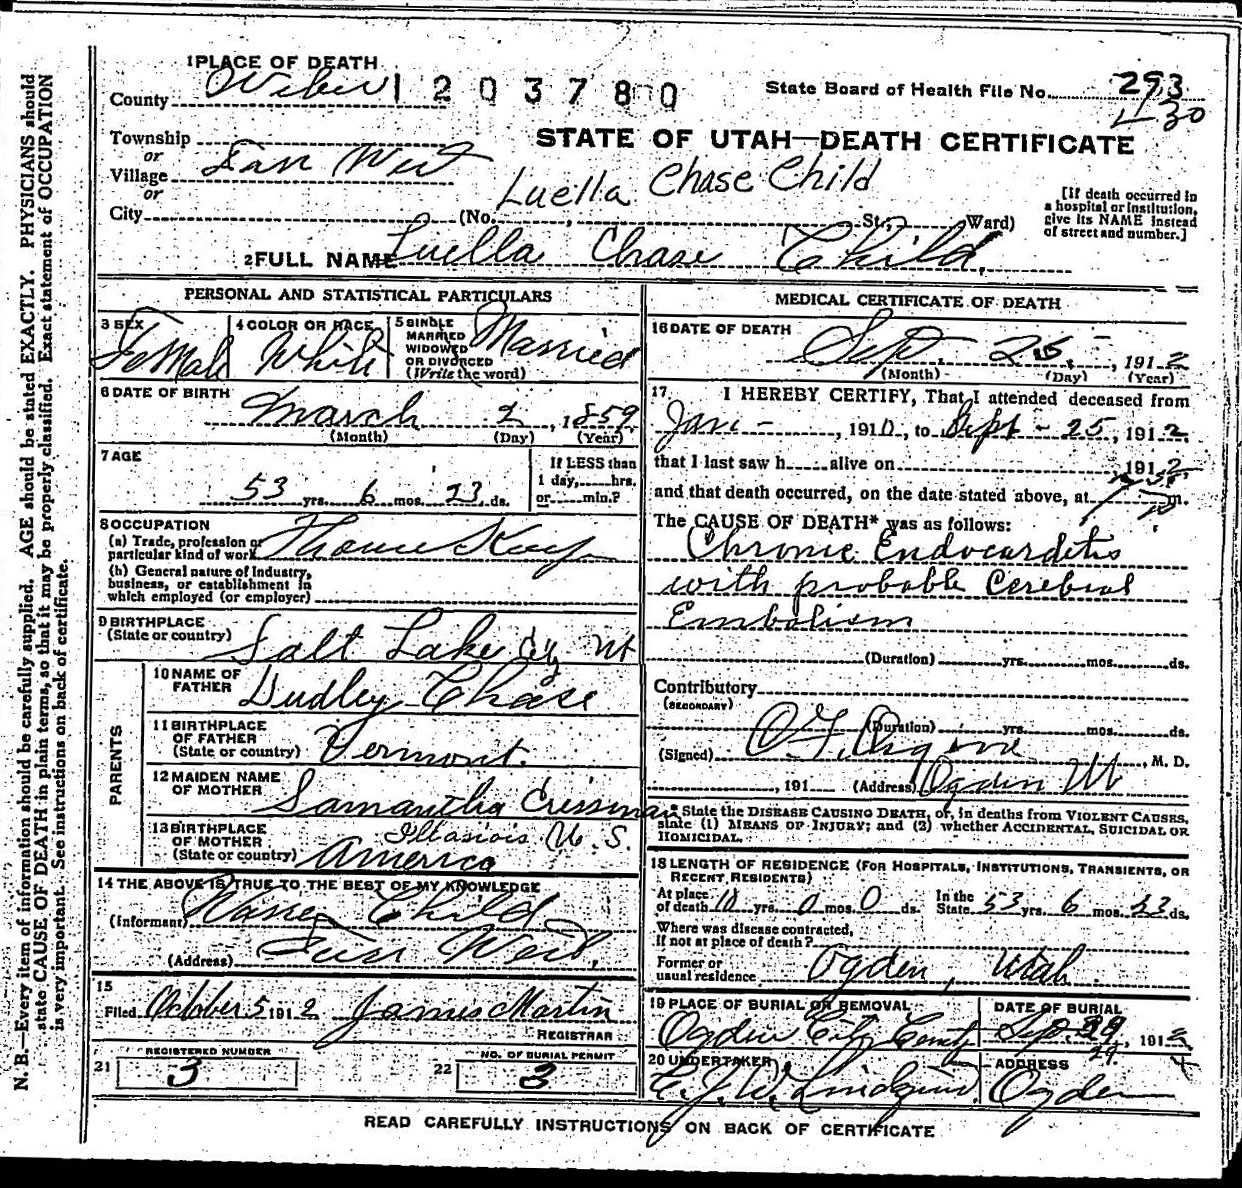 1 PLACE OF DEATH
County Weber 1 2 0 3 7 8 0
State Board of Health File No. 293
L-30
STATE OF UTAH—DEATH CERTIFICATE
Township
or
Village Farr West
or
City (No. , St., Ward)
Luella Chase Child
[If death occurred in a hospital or institution, give its NAME instead of street and number.]
2 FULL NAME Luella Chase Child.
PERSONAL AND STATISTICAL PARTICULARS
3 SEX Female
4 COLOR OR RACE White
5 SINGLE MARRIED WIDOWED OR DIVORCED (Write the word) Married
6 DATE OF BIRTH March 2, 1859
(Month) (Day) (Year)
7 AGE 53 yrs. 6 mos. 23 ds.
If LESS than 1 day, hrs. or min.?
8 OCCUPATION
(a) Trade, profession or particular kind of work House Keep
(b) General nature of industry, business, or establishment in which employed (or employer)
9 BIRTHPLACE
(State or country) Salt Lake Cy Ut
PARENTS
10 NAME OF FATHER Dudley Chase
11 BIRTHPLACE OF FATHER (State or country) Vermont.
12 MAIDEN NAME OF MOTHER Samantha Crissman
13 BIRTHPLACE OF MOTHER (State or country) America U.S.
14 THE ABOVE IS TRUE TO THE BEST OF MY KNOWLEDGE
(Informant) Warren Child
(Address) Farr West,
15
Filed October 5 1912 James Martin
REGISTRAR
21 REGISTERED NUMBER 3
22 NO. OF BURIAL PERMIT 3
MEDICAL CERTIFICATE OF DEATH
16 DATE OF DEATH Sep. 25, 1912
(Month) (Day) (Year)
17. I HEREBY CERTIFY, That I attended deceased from
Jan - , 1910, to Sept - 25, 1912,
that I last saw h alive on , 1912
and that death occurred, on the date stated above, at m.
The CAUSE OF DEATH* was as follows:
Chronic Endocarditis
with probable Cerebral
Embolism
(Duration) yrs. mos. ds.
Contributory
(SECONDARY)
(Duration) yrs. mos. ds.
(Signed) , M. D.
, 191 (Address) Ogden Ut
* State the DISEASE CAUSING DEATH, or, in deaths from VIOLENT CAUSES, state (1) MEANS OF INJURY; and (2) whether ACCIDENTAL, SUICIDAL OR HOMICIDAL.
18 LENGTH OF RESIDENCE (FOR HOSPITALS, INSTITUTIONS, TRANSIENTS, OR RECENT RESIDENTS)
At place of death yrs. 0 mos. 0 ds. In the State 53 yrs. 6 mos. 23 ds.
Where was disease contracted,
If not at place of death?
Former or
usual residence Ogden, Utah.
19 PLACE OF BURIAL OR REMOVAL Ogden City
DATE OF BURIAL Sep. 29, 1912
20 UNDERTAKER
ADDRESS Ogden
READ CAREFULLY INSTRUCTIONS ON BACK OF CERTIFICATE
N. B.—Every item of information should be carefully supplied. AGE should be stated EXACTLY. PHYSICIANS should
state CAUSE OF DEATH in plain terms, so that it may be properly classified. Exact statement of OCCUPATION
is very important. See instructions on back of certificate.